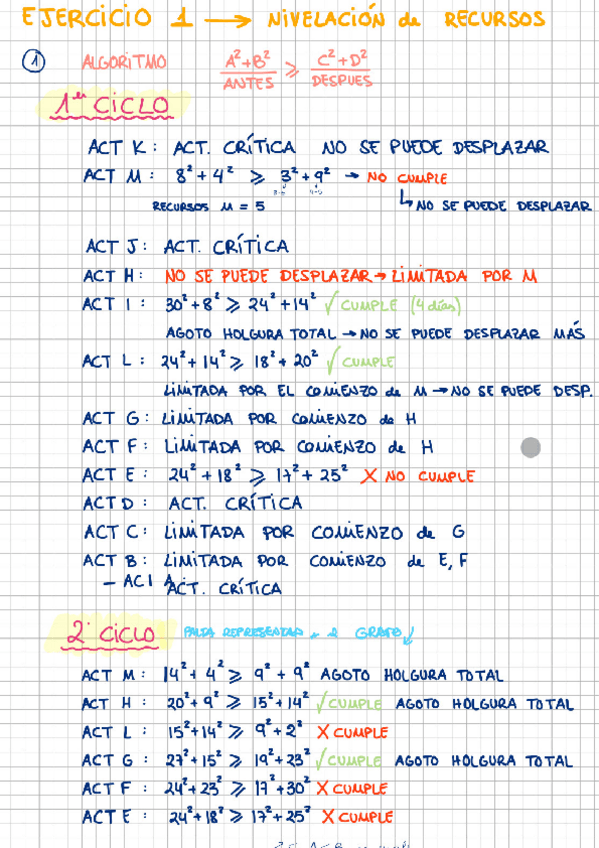 EJERCICIO 1 → NIVELACIÓN de RECURSOS
① ALGORITMO A²+B² / ANTES ⩾ C²+D² / DESPUES
1er CICLO
ACT K : ACT. CRÍTICA NO SE PUEDE DESPLAZAR
ACT M : 8² + 4² ⩾ 3² + 9² → NO CUMPLE
RECURSOS M = 5 ↳ NO SE PUEDE DESPLAZAR
ACT J : ACT. CRÍTICA
ACT H : NO SE PUEDE DESPLAZAR → LIMITADA POR M
ACT I : 30² + 8² ⩾ 24² + 14² √ CUMPLE (4 días)
AGOTO HOLGURA TOTAL → NO SE PUEDE DESPLAZAR MÁS
ACT L : 24² + 14² ⩾ 18² + 20² √ CUMPLE
LIMITADA POR EL COMIENZO de M → NO SE PUEDE DESP.
ACT G : LIMITADA POR COMIENZO de H
ACT F : LIMITADA POR COMIENZO de H
ACT E : 24² + 18² ⩾ 17² + 25² X NO CUMPLE
ACT D : ACT. CRÍTICA
ACT C : LIMITADA POR COMIENZO de G
ACT B : LIMITADA POR COMIENZO de E, F
– ACT A ACT. CRÍTICA
2º CICLO FALTA REPRESENTAR GRAFO
ACT M : 14² + 4² ⩾ 9² + 9² AGOTO HOLGURA TOTAL
ACT H : 20² + 9² ⩾ 15² + 14² √ CUMPLE AGOTO HOLGURA TOTAL
ACT L : 15² + 14² ⩾ 9² + 2² X CUMPLE
ACT G : 27² + 15² ⩾ 19² + 23² √ CUMPLE AGOTO HOLGURA TOTAL
ACT F : 24² + 23² ⩾ 17² + 30² X CUMPLE
ACT E : 24² + 18² ⩾ 17² + 25² X CUMPLE